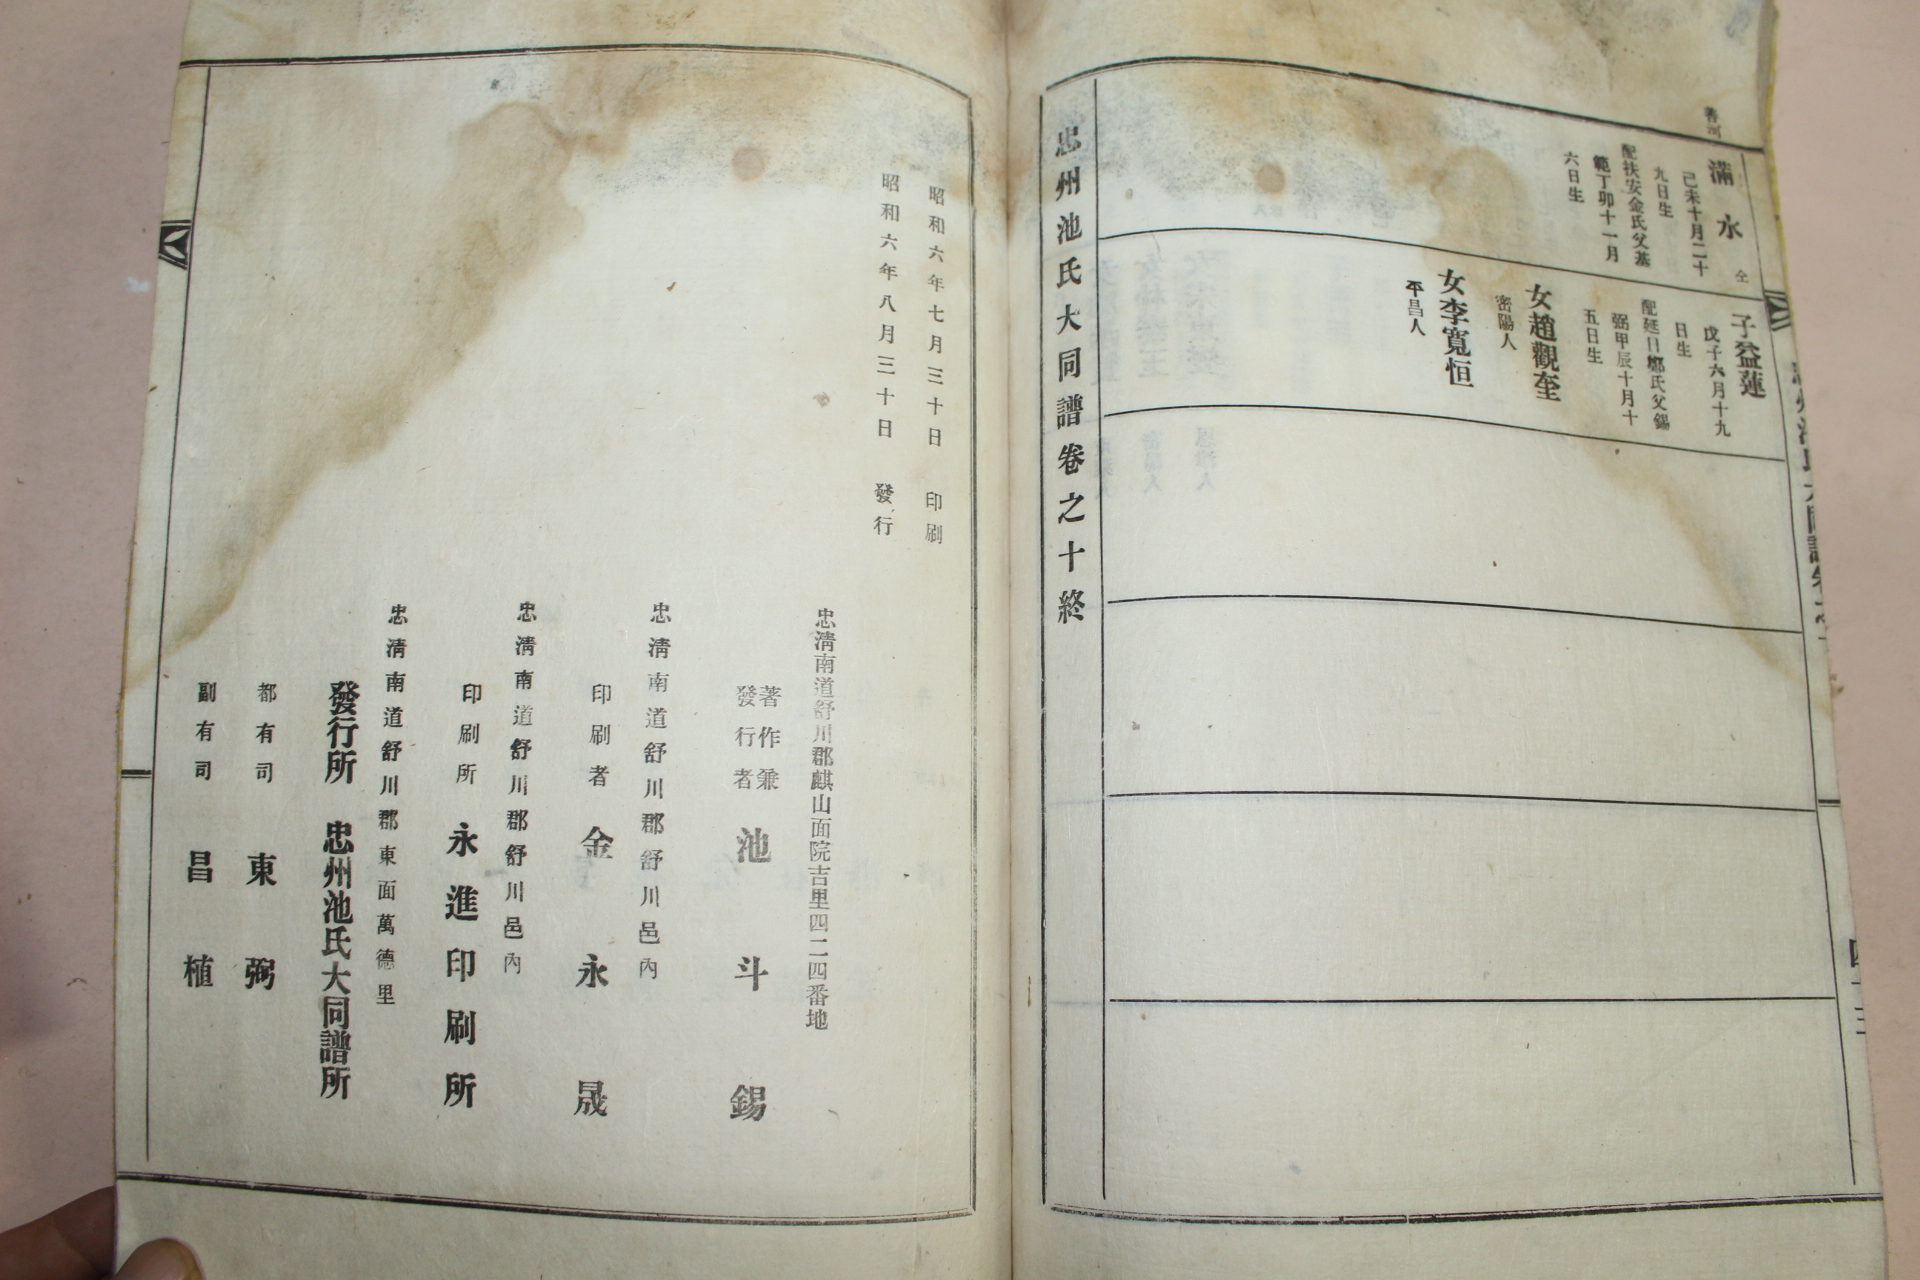 滿水
己未十月二十
九日生
配扶安金氏父基
範丁卯十一月
六日生
子益蓮
戊子六月十九
日生
配延日鄭氏父錫
弼甲辰十月十
五日生
女趙觀奎
密陽人
女李寬恒
平昌人
忠州池氏大同譜卷之十終
昭和六年七月三十日 印刷
昭和六年八月三十日 發行
忠淸南道舒川郡麒山面院吉里四二四番地
著作兼
發行者 池斗錫
忠淸南道舒川郡舒川邑內
印刷者 金永晟
忠淸南道舒川郡舒川邑內
印刷所 永進印刷所
忠淸南道舒川郡東面萬德里
發行所 忠州池氏大同譜所
都有司 東弼
副有司 昌植